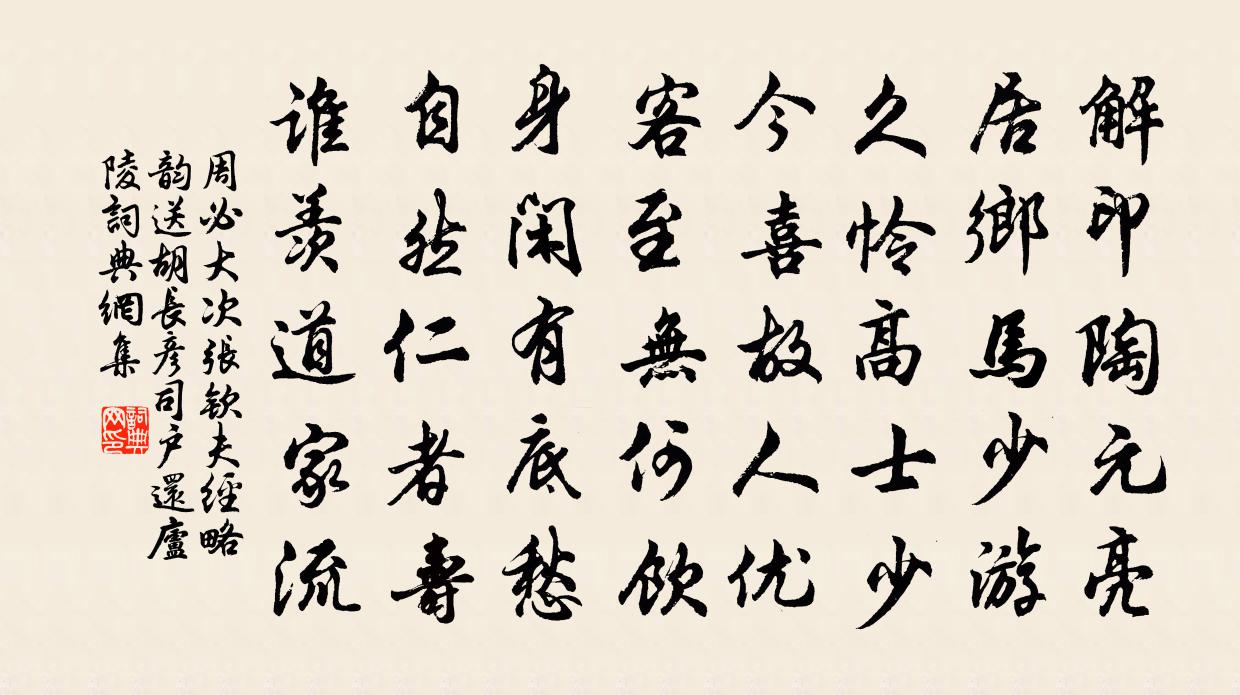 解印陶元亮
居鄉馬少游
久怜高士少
今喜故人优
客至無何飲
身閑有底愁
自然仁者壽
誰羨道家流
周必大次張欽夫經略
韵送胡長彦司户還廬
陵詞典網集
詞典
网印